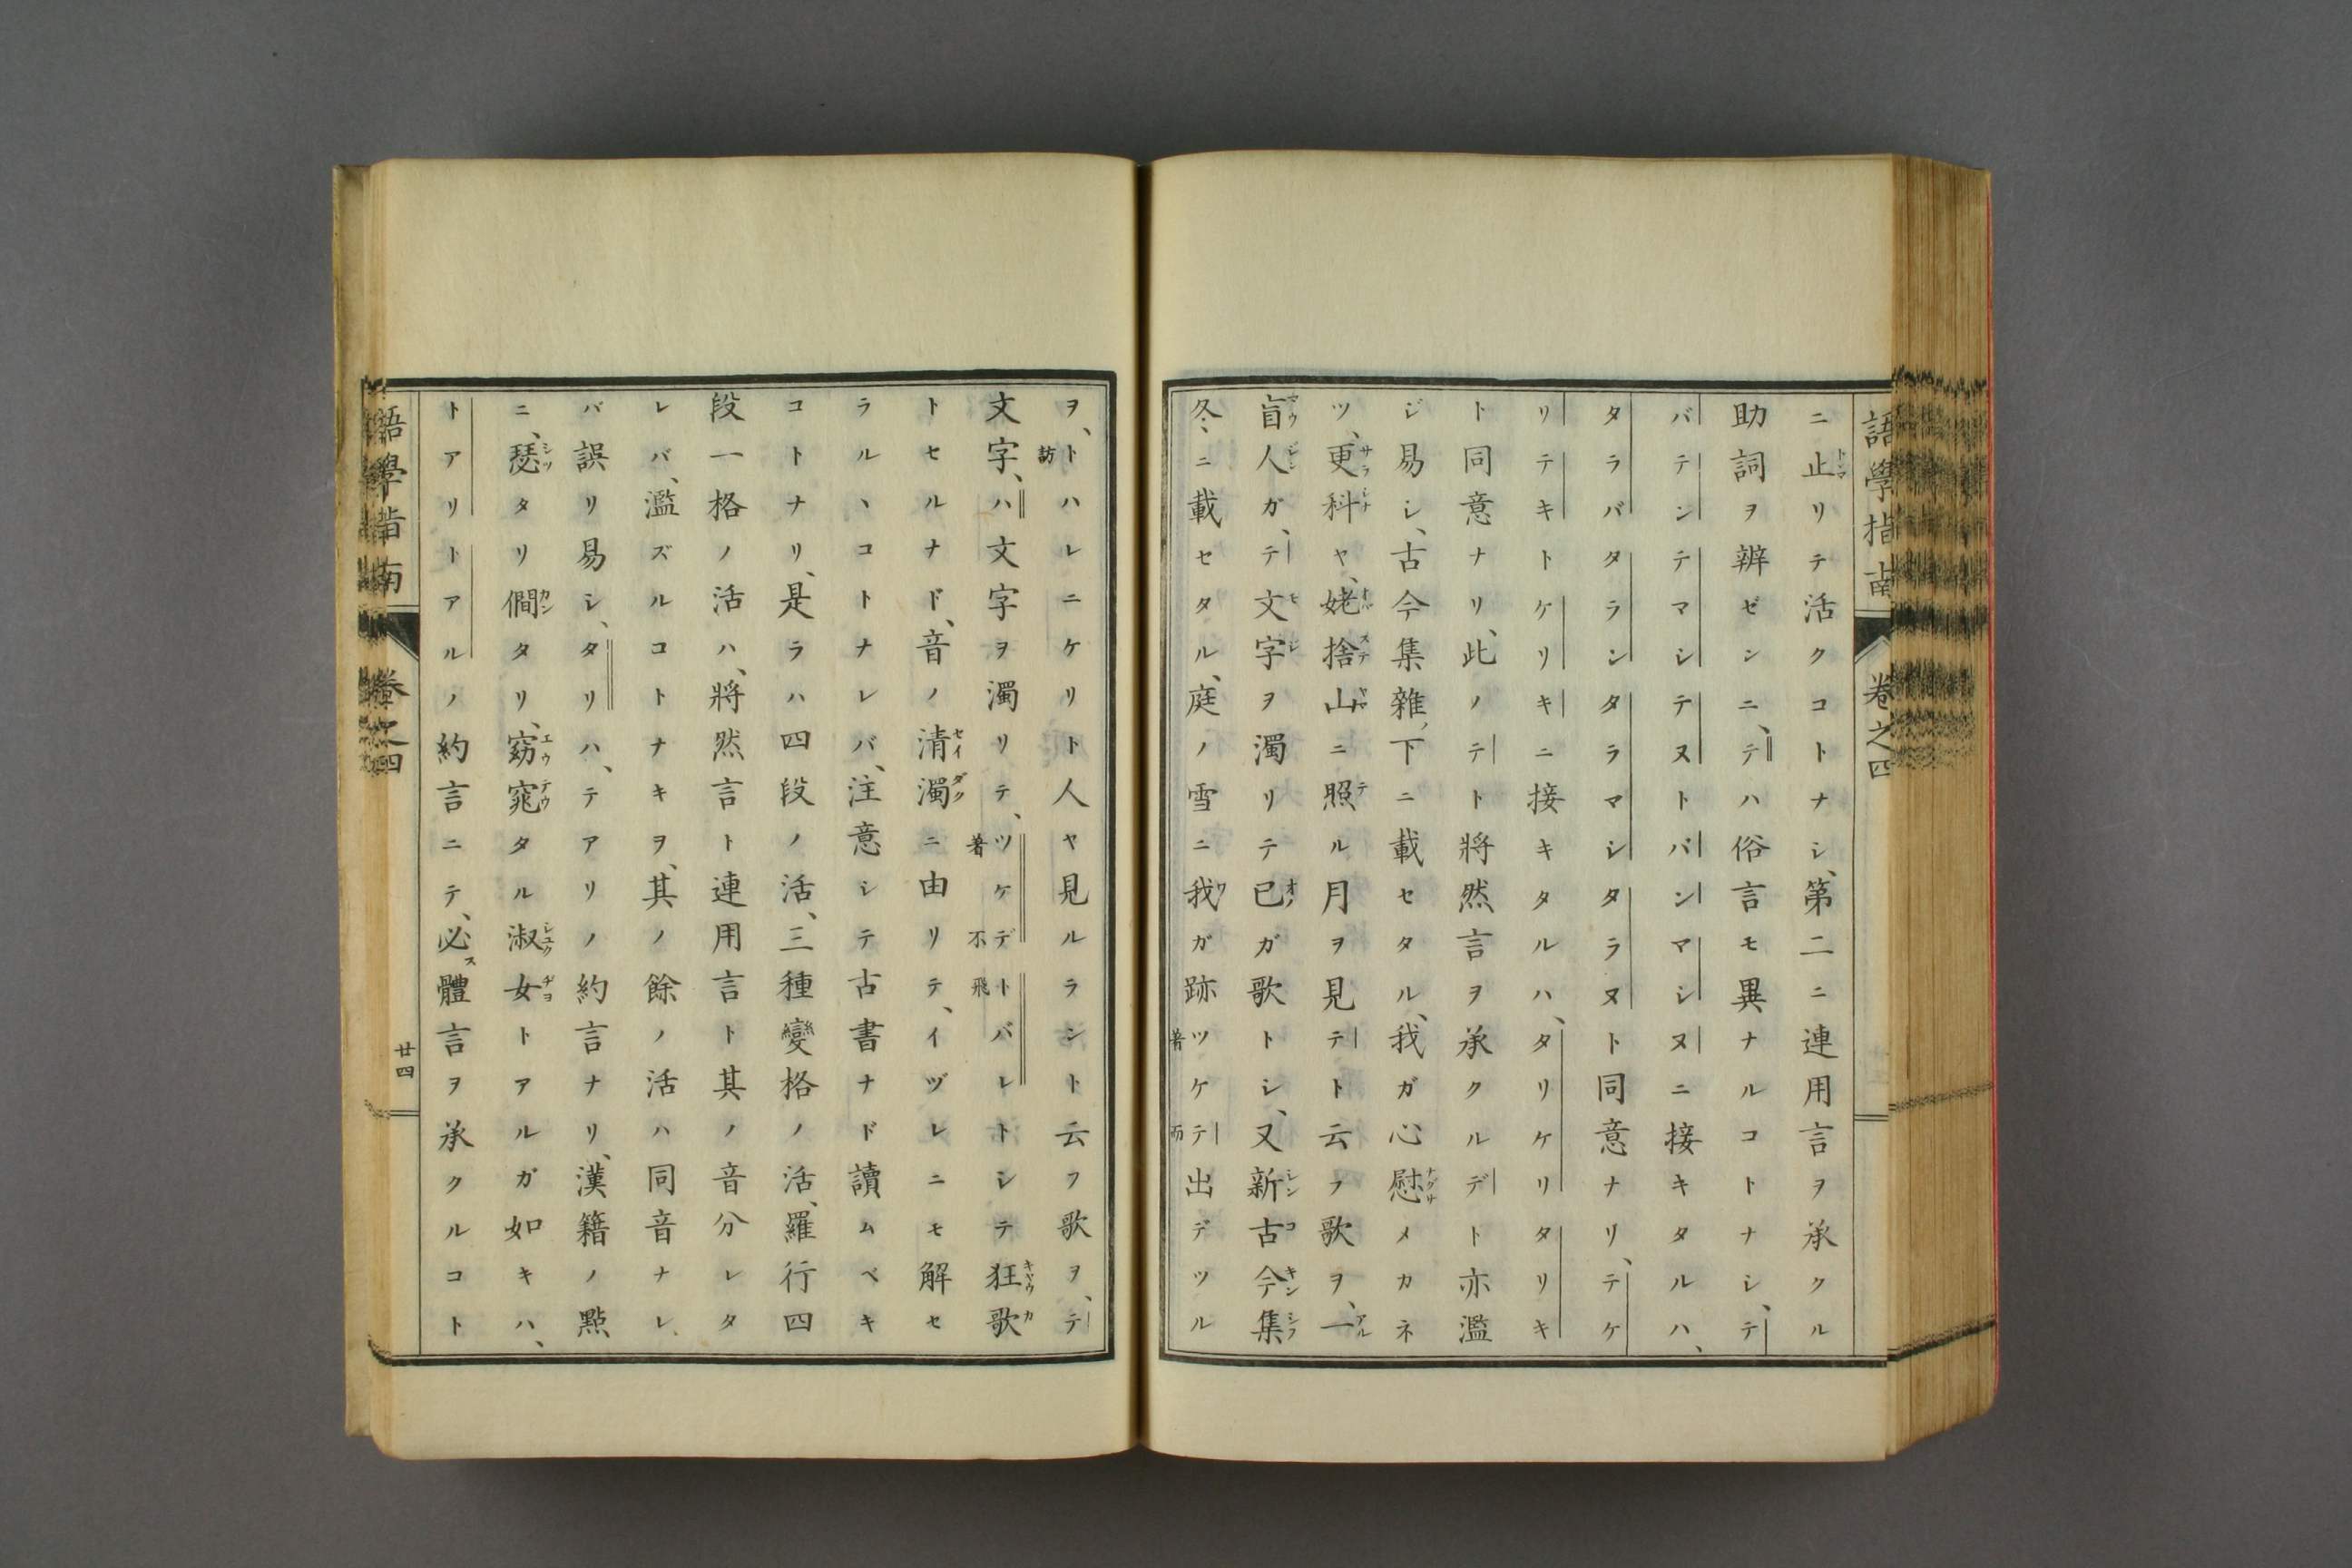 語學指南 卷之四
ニ止リテ活クコトナシ、第二ニ連用言ヲ承クル
助詞ヲ辨ゼンニ、テハ俗言モ異ナルコトナシ、テ
バテンテマシテヌトバンマシヌニ接キタルハ、
タラバタランタラマシタラヌト同意ナリ、テケ
リテキトケリキニ接キタルハ、タリケリタリキ
ト同意ナリ、此ノテト將然言ヲ承クルデト亦濫
ジ易シ、古今集雜ノ下ニ載セタル、我ガ心慰メカネ
ツ、更科ヤ、姥捨山ニ照ル月ヲ見テト云フ歌ヲ、一
盲人ガ、テ文字ヲ濁リテ已ガ歌トシ、又新古今集
冬、ニ載セタル、庭ノ雪ニ我ガ跡ツケテ出デツル
ヲ、トハレニケリト人ヤ見ルラント云フ歌ヲ、テ
文字、ハ文字ヲ濁リテ、ツケデトバレトシテ狂歌
トセルナド、音ノ清濁ニ由リテ、イヅレニモ解セ
ラルヽコトナレバ、注意シテ古書ナド讀ムベキ
コトナリ、是ラハ四段ノ活、三種變格ノ活、羅行四
段一格ノ活ハ、將然言ト連用言ト其ノ音分レタ
レバ、濫ズルコトナキヲ、其ノ餘ノ活ハ同音ナレ
バ誤リ易シ、タリハ、テアリノ約言ナリ、漢籍ノ點
ニ、瑟タリ僩タリ、窈窕タル淑女トアルガ如キハ、
トアリトアルノ約言ニテ、必ス體言ヲ承クルコト
語學指南 卷之四 廿四